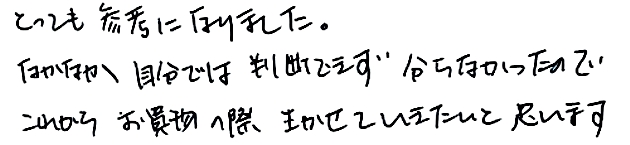 とっても 参考になりました。
なかなか 自分では 判断できず 分らなかったので
これから お買物の際、生かせていえたいと 思います